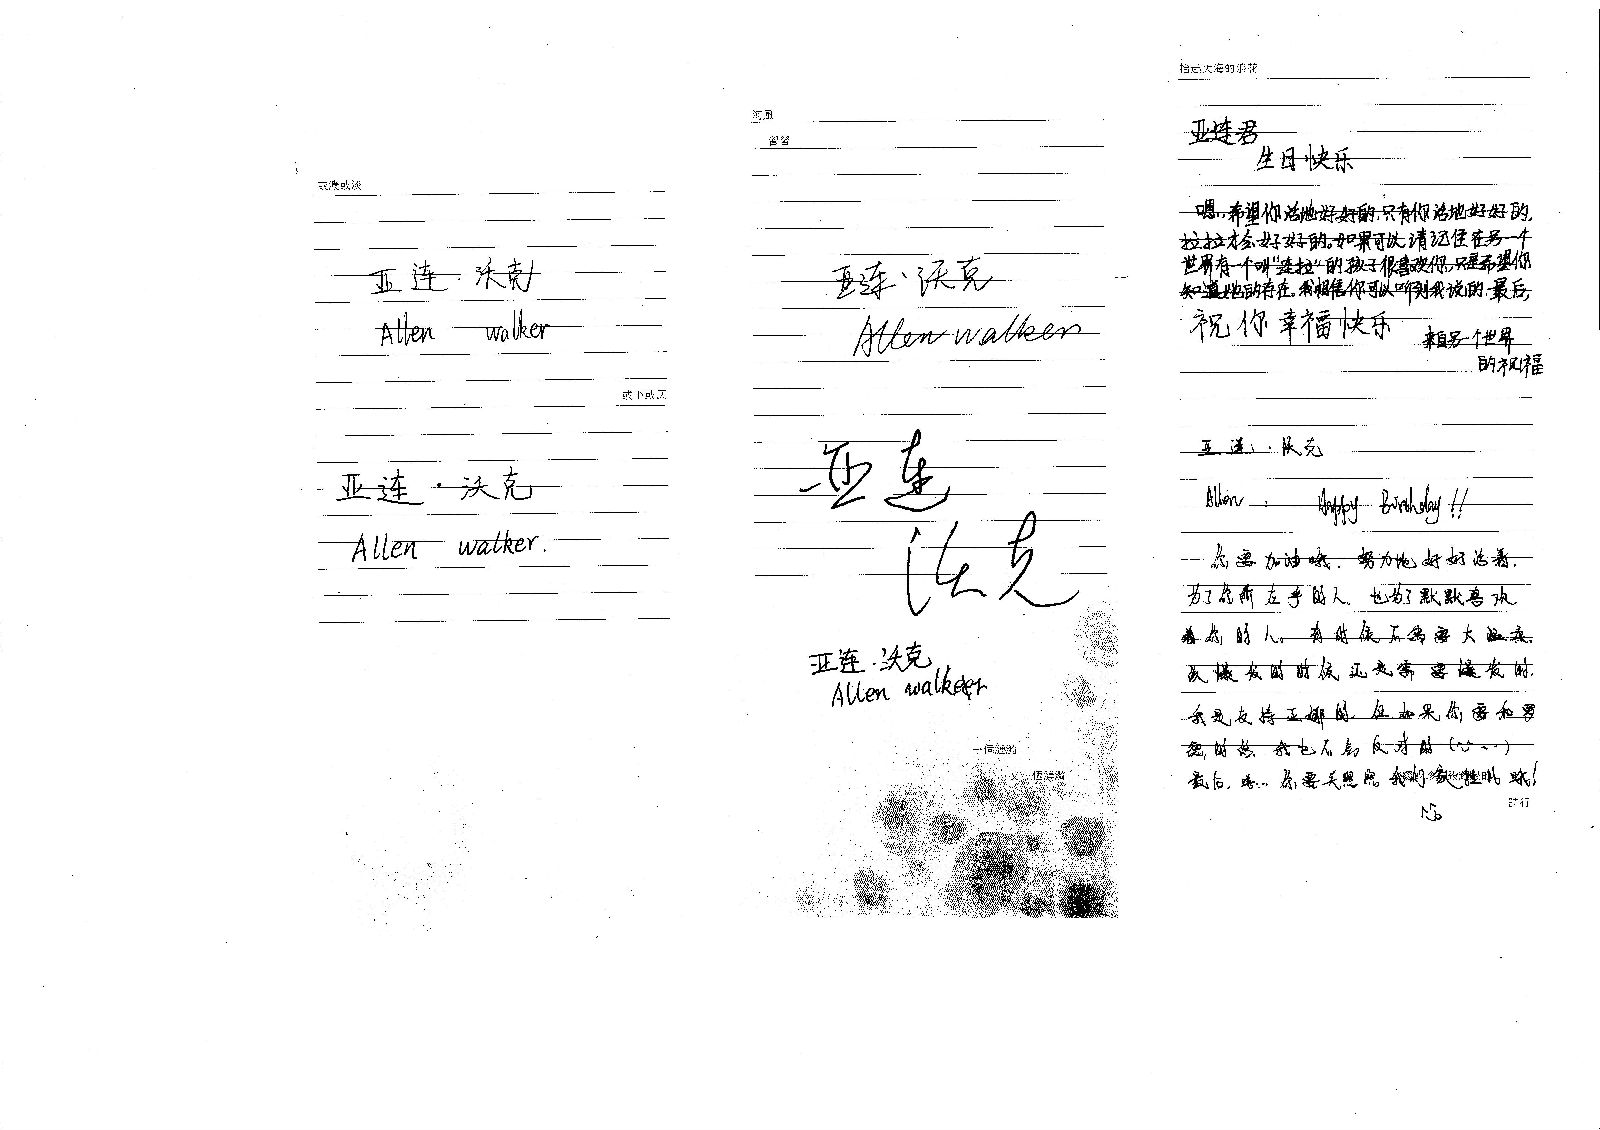 或濃或淡
亚连·沃克
Allen walker
亚连·沃克
Allen walker.
河風
習習
亚连·沃克
Allen walker
亚连
沃克
亚连·沃克
Allen walker
大海的浪花
亚连君
生日快乐
嗯,希望你活地好好的,只有你活地好好的,
拉拉才会好好的。如果可以请记住在另一个
世界有一个叫"连拉"的孩子很喜欢你,只是希望你
知道她的存在。我相信你可以听到我说的,最后,
祝你幸福快乐
来自另一个世界
的祝福
亚连·沃克
Allen, Happy Birthday!!
你要加油哦,努力地好好活着,
为了你所在乎的人,也为了默默喜欢
着你的人。有时候不需要大
爆发的时候还是需要爆发的,
我是支持亚娜的,但如果你要和罗
的话 我也不会反对的
最后,嗯.. 你要关照 我们 哦!